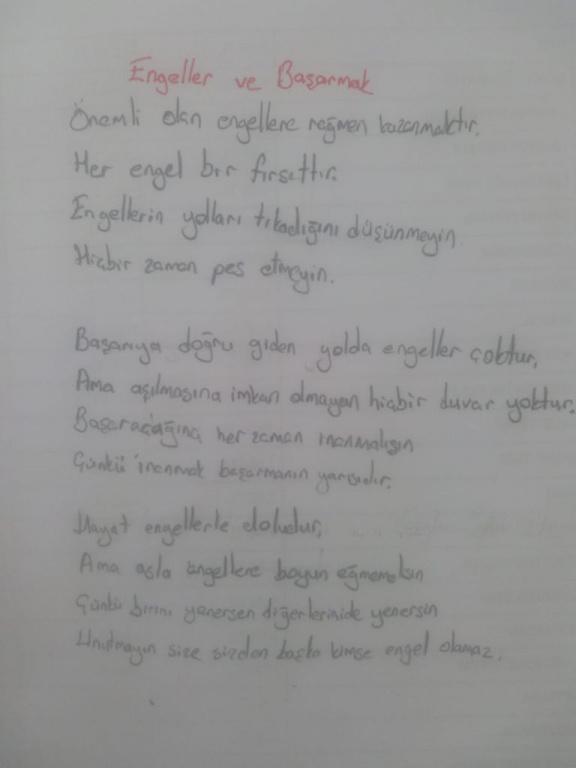 Engeller ve Başarmak
Önemli olan engellere rağmen kazanmaktır.
Her engel bir fırsattır.
Engellerin yolları tıkadığını düşünmeyin.
Hiçbir zaman pes etmeyin.
Başarıya doğru giden yolda engeller çoktur,
Ama aşılmasına imkan olmayan hiçbir duvar yoktur.
Başaracağına her zaman inanmalısın
Çünkü inanmak başarmanın yarısıdır.
Hayat engellerle doludur,
Ama asla engellere boyun eğmemelisin
Çünkü birini yenersen diğerlerinide yenersin
Unutmayın size sizden başka kimse engel olamaz.